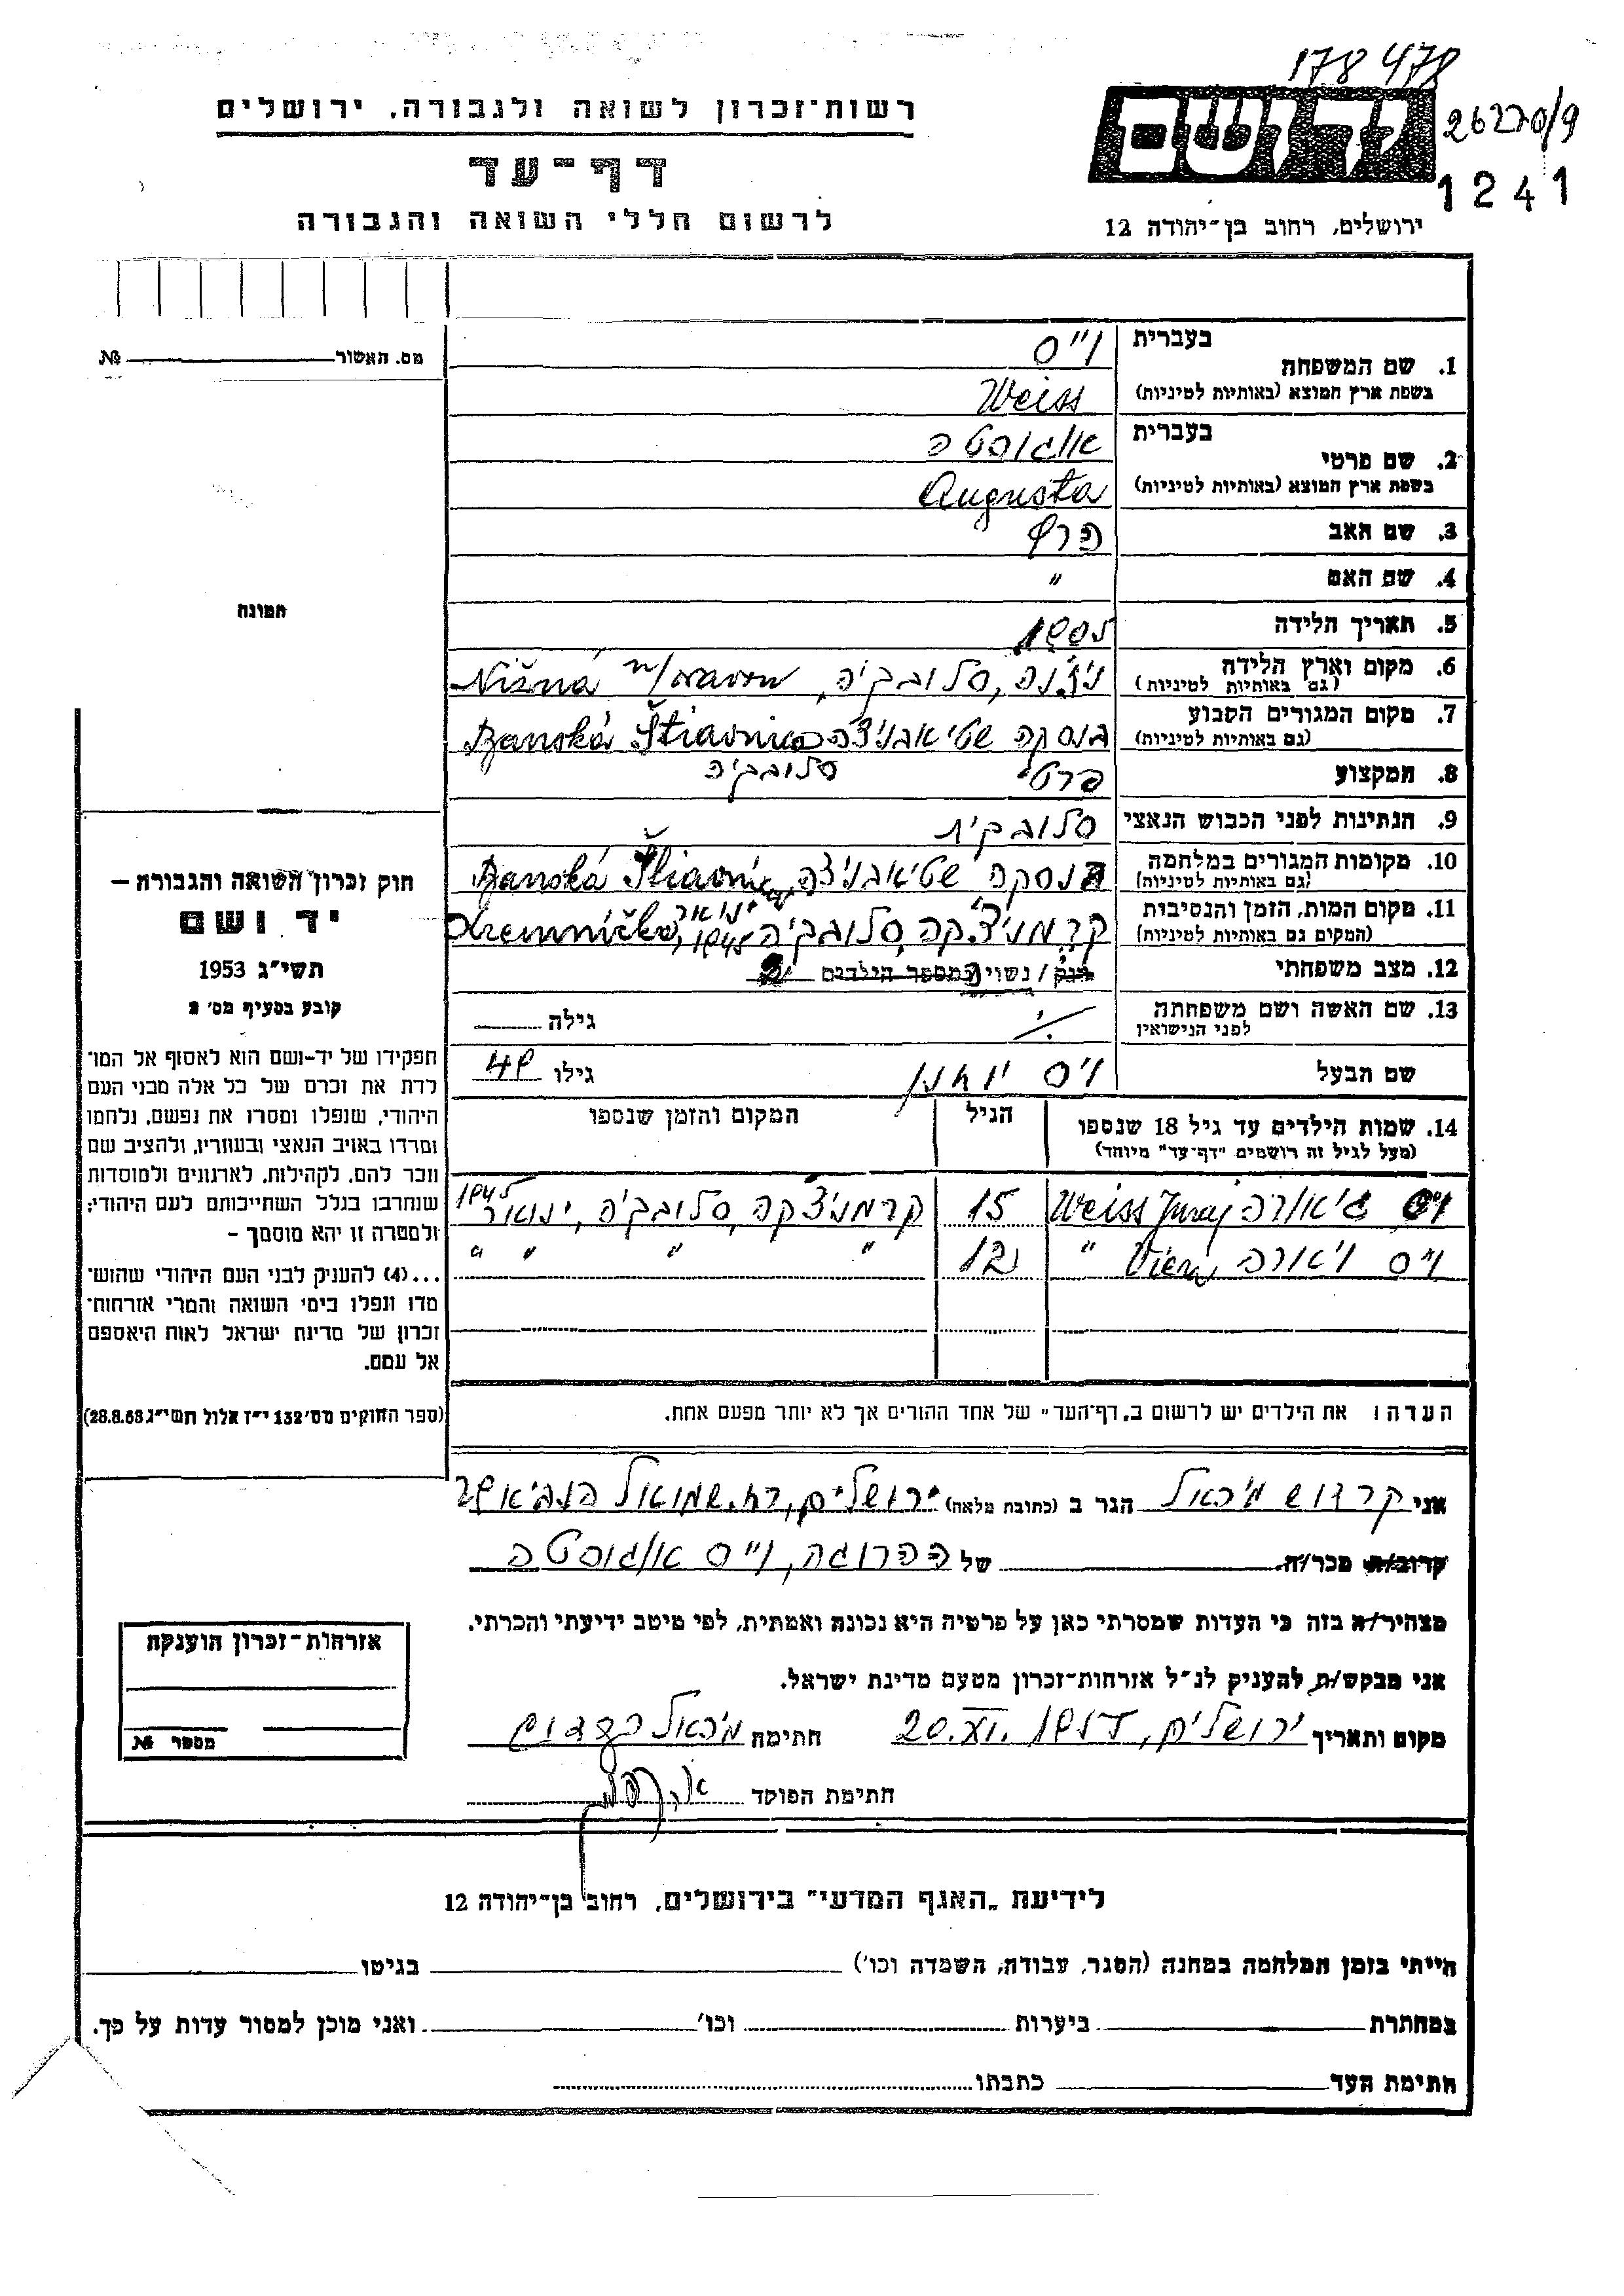 178 478
26220/9
1241
רשות־זכרון לשואה ולגבורה, ירושלים
דף־עד
לרשום חללי השואה והגבורה
ירושלים, רחוב בן־יהודה 12
מס. האשור № 
1. שם המשפחה
בעברית
וייס
בשפת ארץ המוצא (באותיות לטיניות)
Weiss
2. שם פרטי
בעברית
אוגוסטה
בשפת ארץ המוצא (באותיות לטיניות)
Augusta
3. שם האב
4. שם האם "
5. תאריך הלידה 1905
6. מקום וארץ הלידה
(גם באותיות לטיניות)
ניז'נה, סלובקיה, Nižná n/Oravou
7. מקום המגורים הקבוע
(גם באותיות לטיניות)
בנסקה שטיאבניצה Banská Štiavnica
סלובקיה
8. המקצוע פרטי
9. הנתינות לפני הכבוש הנאצי סלובקית
10. מקומות המגורים במלחמה
(גם באותיות לטיניות)
בנסקה שטיאבניצה, Banská Štiavnica
11. מקום המות, הזמן והנסיבות
(המקום גם באותיות לטיניות)
קרמניצ'קה, סלובקיה ינואר 1945, Kremnička
12. מצב משפחתי רוק / נשוי מספר הילדים 2
13. שם האשה ושם משפחתה
לפני הנישואין
גילה
שם הבעל וייס יוחנן גילו 49
14. שמות הילדים עד גיל 18 שנספו
(מעל לגיל זה רושמים "דף־עד" מיוחד)
הגיל
המקום והזמן שנספו
Weiss Juraj 15 קרמניצ'קה, סלובקיה, ינואר 1945
וייס ויארה Viera " 12 " " " "
הערה: את הילדים יש לרשום ב„דף־העד" של אחד ההורים אך לא יותר מפעם אחת.
תמונה
חוק זכרון השואה והגבורה —
יד ושם
תשי"ג 1953
קובע בסעיף מס' 2
תפקידו של יד-ושם הוא לאסוף אל המו־
לדת את זכרם של כל אלה מבני העם
היהודי, שנפלו ומסרו את נפשם, נלחמו
ומרדו באויב הנאצי ובעוזריו, ולהציב שם
וזכר להם, לקהילות, לארגונים ולמוסדות
שנחרבו בגלל השתייכותם לעם היהודי;
ולמטרה זו יהא מוסמך –
...(4) להעניק לבני העם היהודי שהוש־
מדו ונפלו בימי השואה והמרי אזרחות־
זכרון של מדינת ישראל לאות היאספם
אל עמם.
(ספר החוקים מס' 132 י"ז אלול תשי"ג 28.8.53)
אני קרדוש מיכאל הגר ב (כתובת מלאה) ירושלים, רח. שמואל הנביא
קרוב/ה מכר/ה של ההרוגה, וייס אוגוסטה
מצהיר/ה בזה כי העדות שמסרתי כאן על פרטיה היא נכונה ואמתית, לפי מיטב ידיעתי והכרתי.
אני מבקש/ת להעניק לנ"ל אזרחות־זכרון מטעם מדינת ישראל.
מקום ותאריך ירושלים, 20.XI.1957 חתימה מיכאל קרדוש
חתימת הפוקד
אזרחות־זכרון הוענקה
מספר №
לידיעת „האגף המדעי" בירושלים, רחוב בן־יהודה 12
הייתי בזמן המלחמה במחנה (הסגר, עבודה, השמדה וכו') בגיטו
במחתרת ביערות וכו' ואני מוכן למסור עדות על כך.
חתימת העד כתבתו